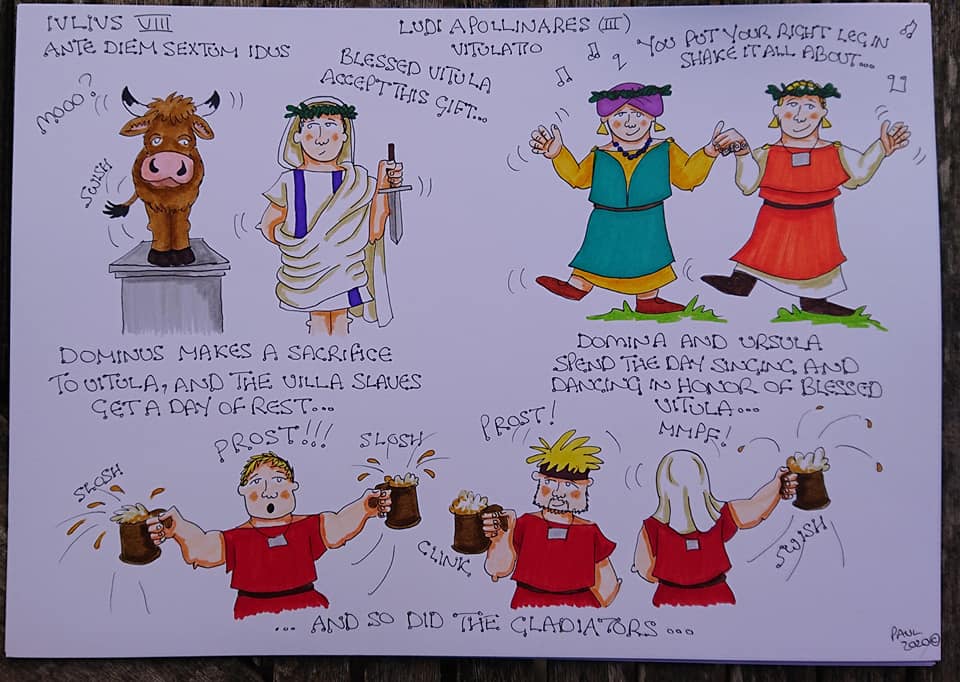 IVLIUS VIII
ANTE DIEM SEXTUM IDUS
LUDI APOLLINARES (III)
VITULATIO
MOOO?
SWISH
BLESSED VITULA
ACCEPT THIS GIFT...
YOU PUT YOUR RIGHT LEG IN
SHAKE IT ALL ABOUT...
DOMINUS MAKES A SACRIFICE
TO VITULA, AND THE VILLA SLAVES
GET A DAY OF REST...
DOMINA AND URSULA
SPEND THE DAY SINGING AND
DANCING IN HONOR OF BLESSED
VITULA...
SLOSH
PROST!!!
SLOSH
PROST!
CLINK
MMPF!
SWISH
... AND SO DID THE GLADIATORS...
PAUL
2020©